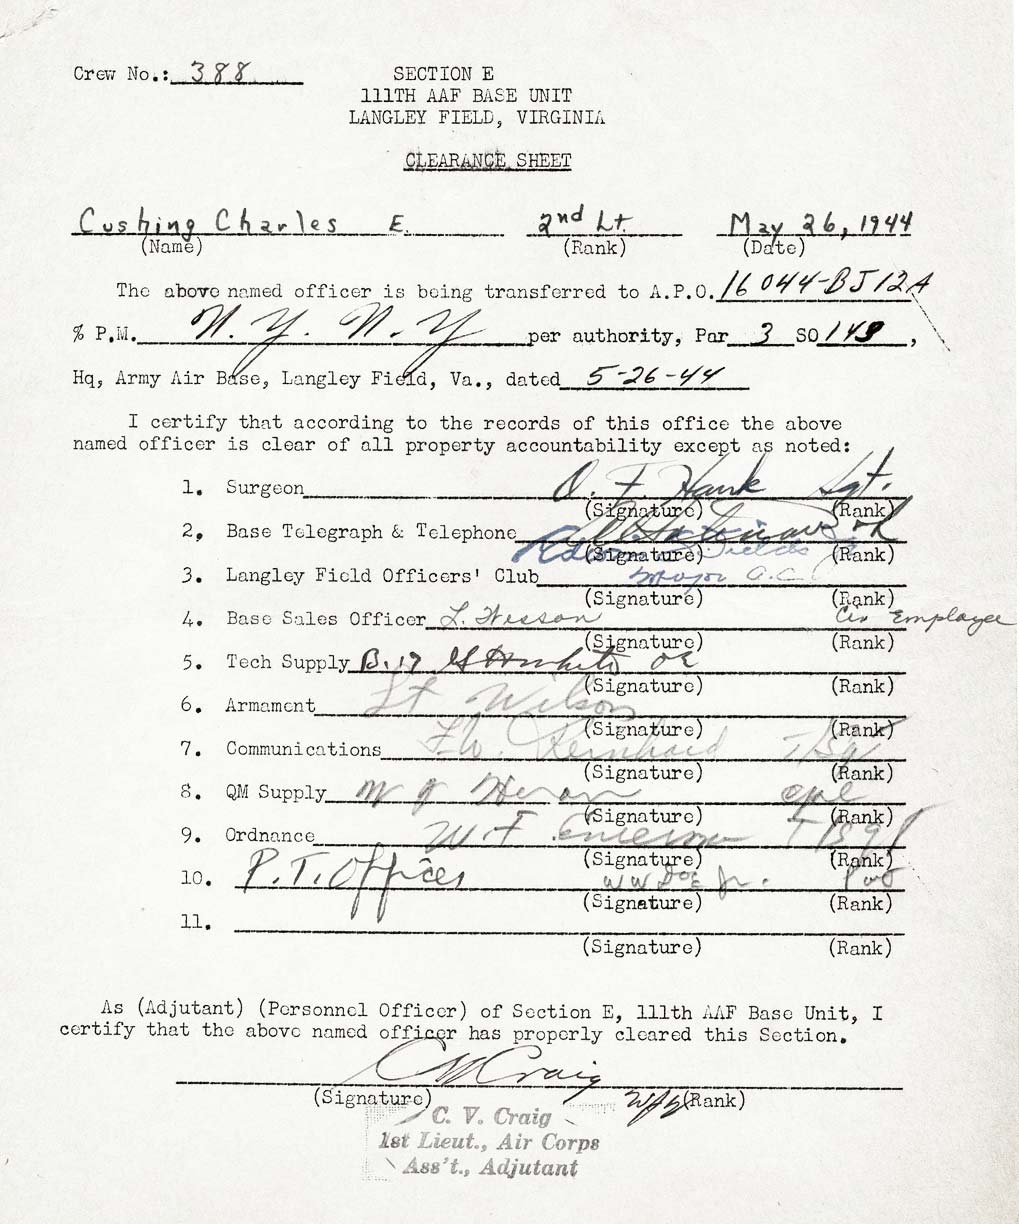 Crew No.: 388
SECTION E
111TH AAF BASE UNIT
LANGLEY FIELD, VIRGINIA
CLEARANCE SHEET
Cushing Charles E. 2nd Lt. May 26, 1944
(Name) (Rank) (Date)
The above named officer is being transferred to A.P.O. 16044-BJ12A
% P.M. N.Y. N.Y per authority, Par 3 SO 148,
Hq, Army Air Base, Langley Field, Va., dated 5-26-44
I certify that according to the records of this office the above
named officer is clear of all property accountability except as noted:
1. Surgeon O. F Hank Sgt.
(Signature) (Rank)
2, Base Telegraph & Telephone
(Signature) (Rank)
3. Langley Field Officers' Club Major A.C.
(Signature) (Rank)
4. Base Sales Officer L. Wesson Civ Employee
(Signature) (Rank)
5. Tech Supply B.17
(Signature) (Rank)
6. Armament Lt Wilson
(Signature) (Rank)
7. Communications F.W. T/Sgt
(Signature) (Rank)
8. QM Supply W J Heron cpl
(Signature) (Rank)
9. Ordnance W. F. T/Sgt
(Signature) (Rank)
10. P.T. Office WW Doe Jr.
(Signature) (Rank)
11.
(Signature) (Rank)
As (Adjutant) (Personnel Officer) of Section E, 111th AAF Base Unit, I
certify that the above named officer has properly cleared this Section.
CV Craig
(Signature) (Rank)
C. V. Craig
1st Lieut., Air Corps
Ass't., Adjutant